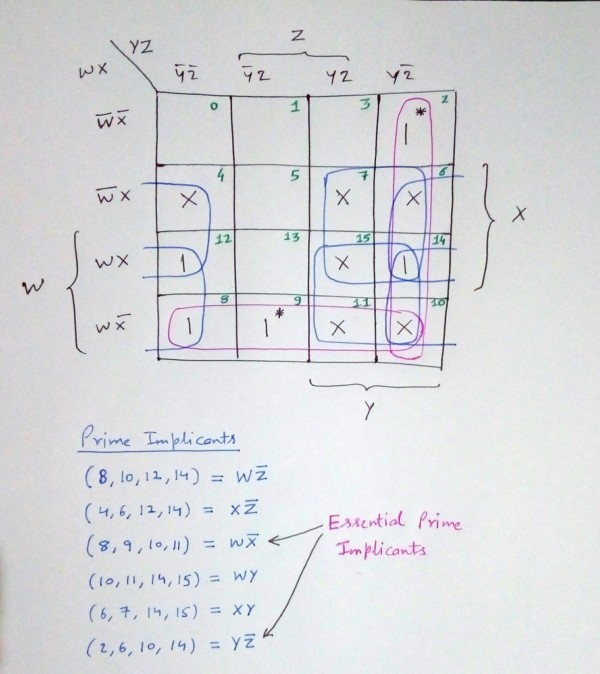 Z
YZ
WX
Y̅Z̅ Y̅Z YZ YZ̅
W̅X̅ 0 1 3 2
1*
W̅X 4 5 7 6
X X X
X
WX 12 13 15 14
1 X 1
W
WX̅ 8 9 11 10
1 1* X X
Y
Prime Implicants
(8,10,12,14) = WZ̅
(4,6,12,14) = XZ̅
(8,9,10,11) = WX̅
(10,11,14,15) = WY
(6,7,14,15) = XY
(2,6,10,14) = YZ̅
Essential Prime
Implicants